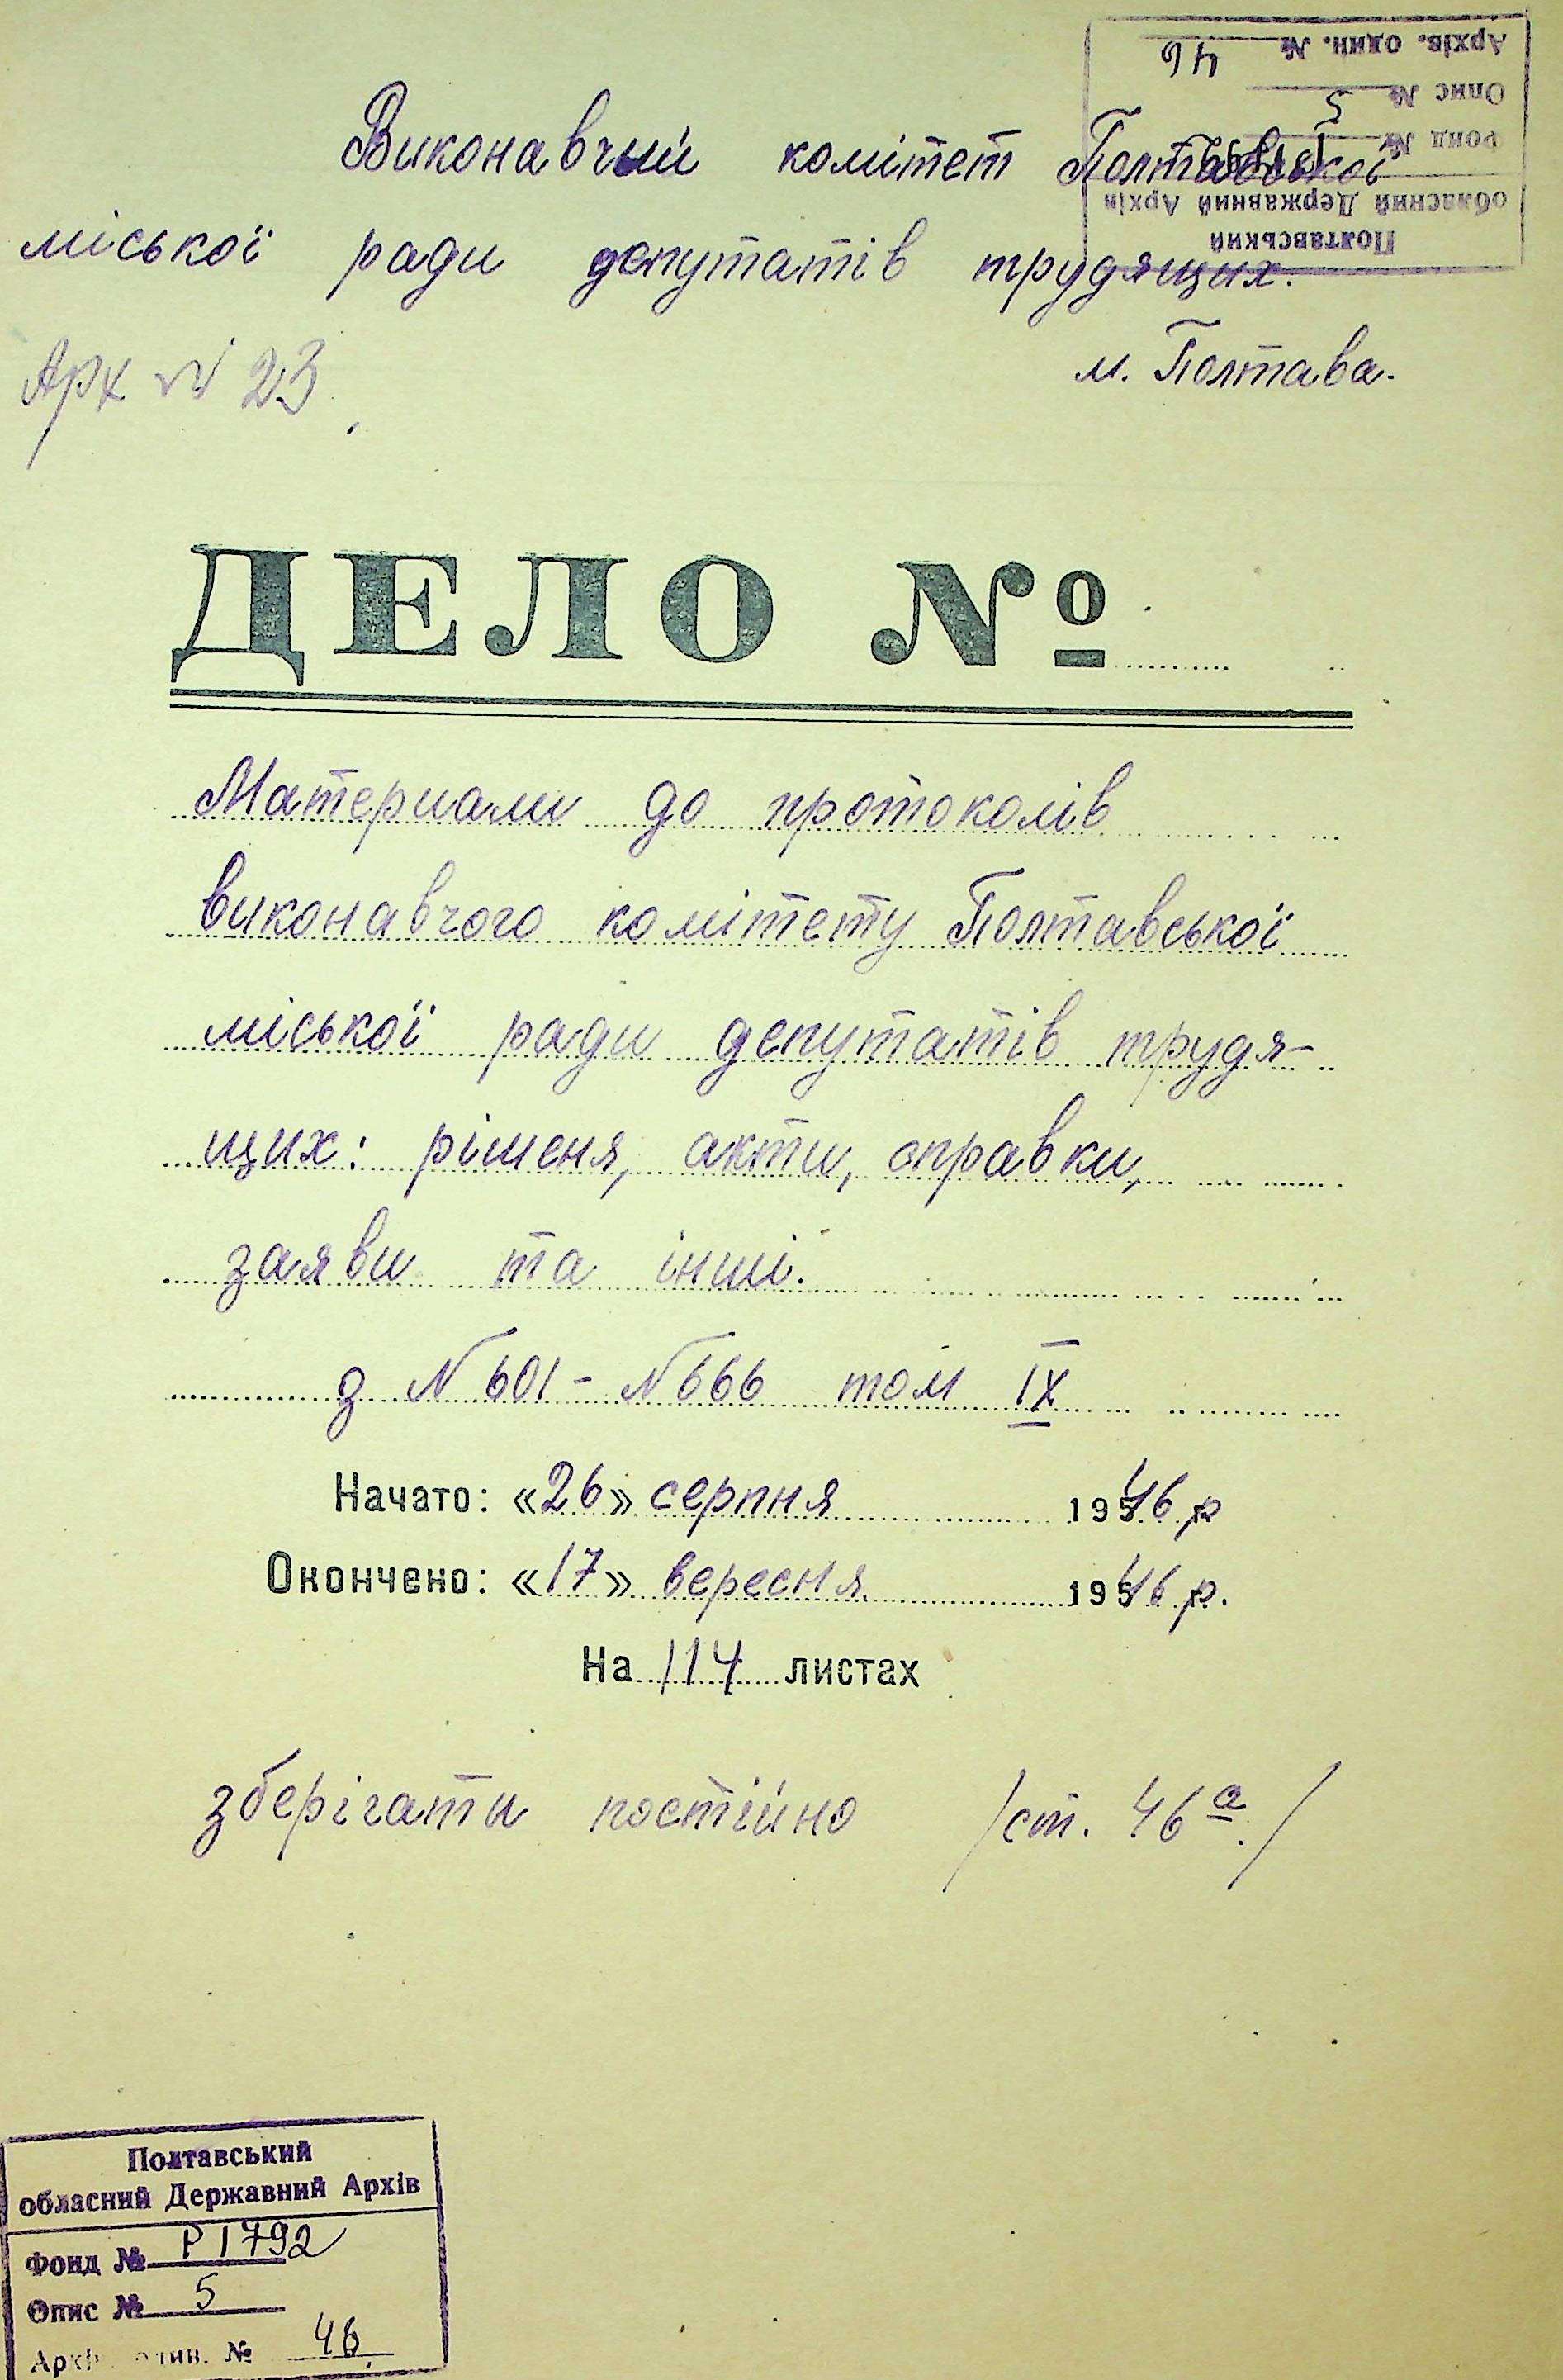 Архів. один. № 46
Опис № 5
Фонд №
обласний Державний Архів
Полтавський
Виконавчий комітет Полтавської
міської ради депутатів трудящих.
м. Полтава.
Арх № 23
ДЕЛО №
Материали до протоколів
виконавчого комітету Полтавської
міської ради депутатів трудя-
щих: рішеня, акти, справки,
заяви та інші.
з № 601 - № 666 том IX
Начато: «26» серпня 1946 р
Окончено: «17» вересня 1946 р.
На 114 листах
зберігати постійно /ст. 46 а./
Полтавський
обласний Державний Архів
Фонд № Р 1792
Опис № 5
Архів. один. № 46